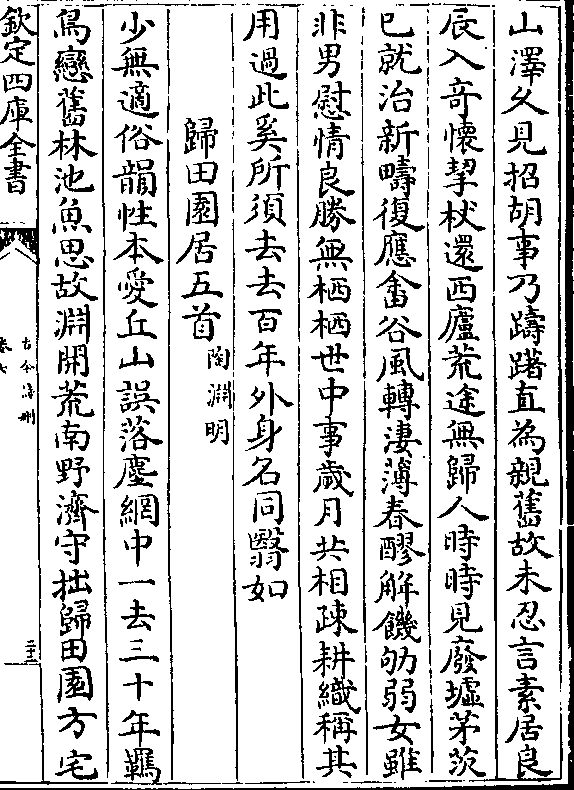 山澤久見招胡事乃躊躇直為親舊故未忍言素居良
辰入奇懷挈杖還西廬荒途無歸人時時見廢墟茅茨
已就治新疇復應畬谷風轉淒薄春醪解饑劬弱女雖
非男慰情良勝無栖栖世中事歲月共相疎耕織稱其
用過此奚所須去去百年外身名同翳如
歸田園居五首
陶淵明
少無適俗韻性本愛丘山誤落塵網中一去三十年羈
鳥戀舊林池魚思故淵開荒南野濟守拙歸田園方宅
欽定四庫全書
古今詩刪
卷七